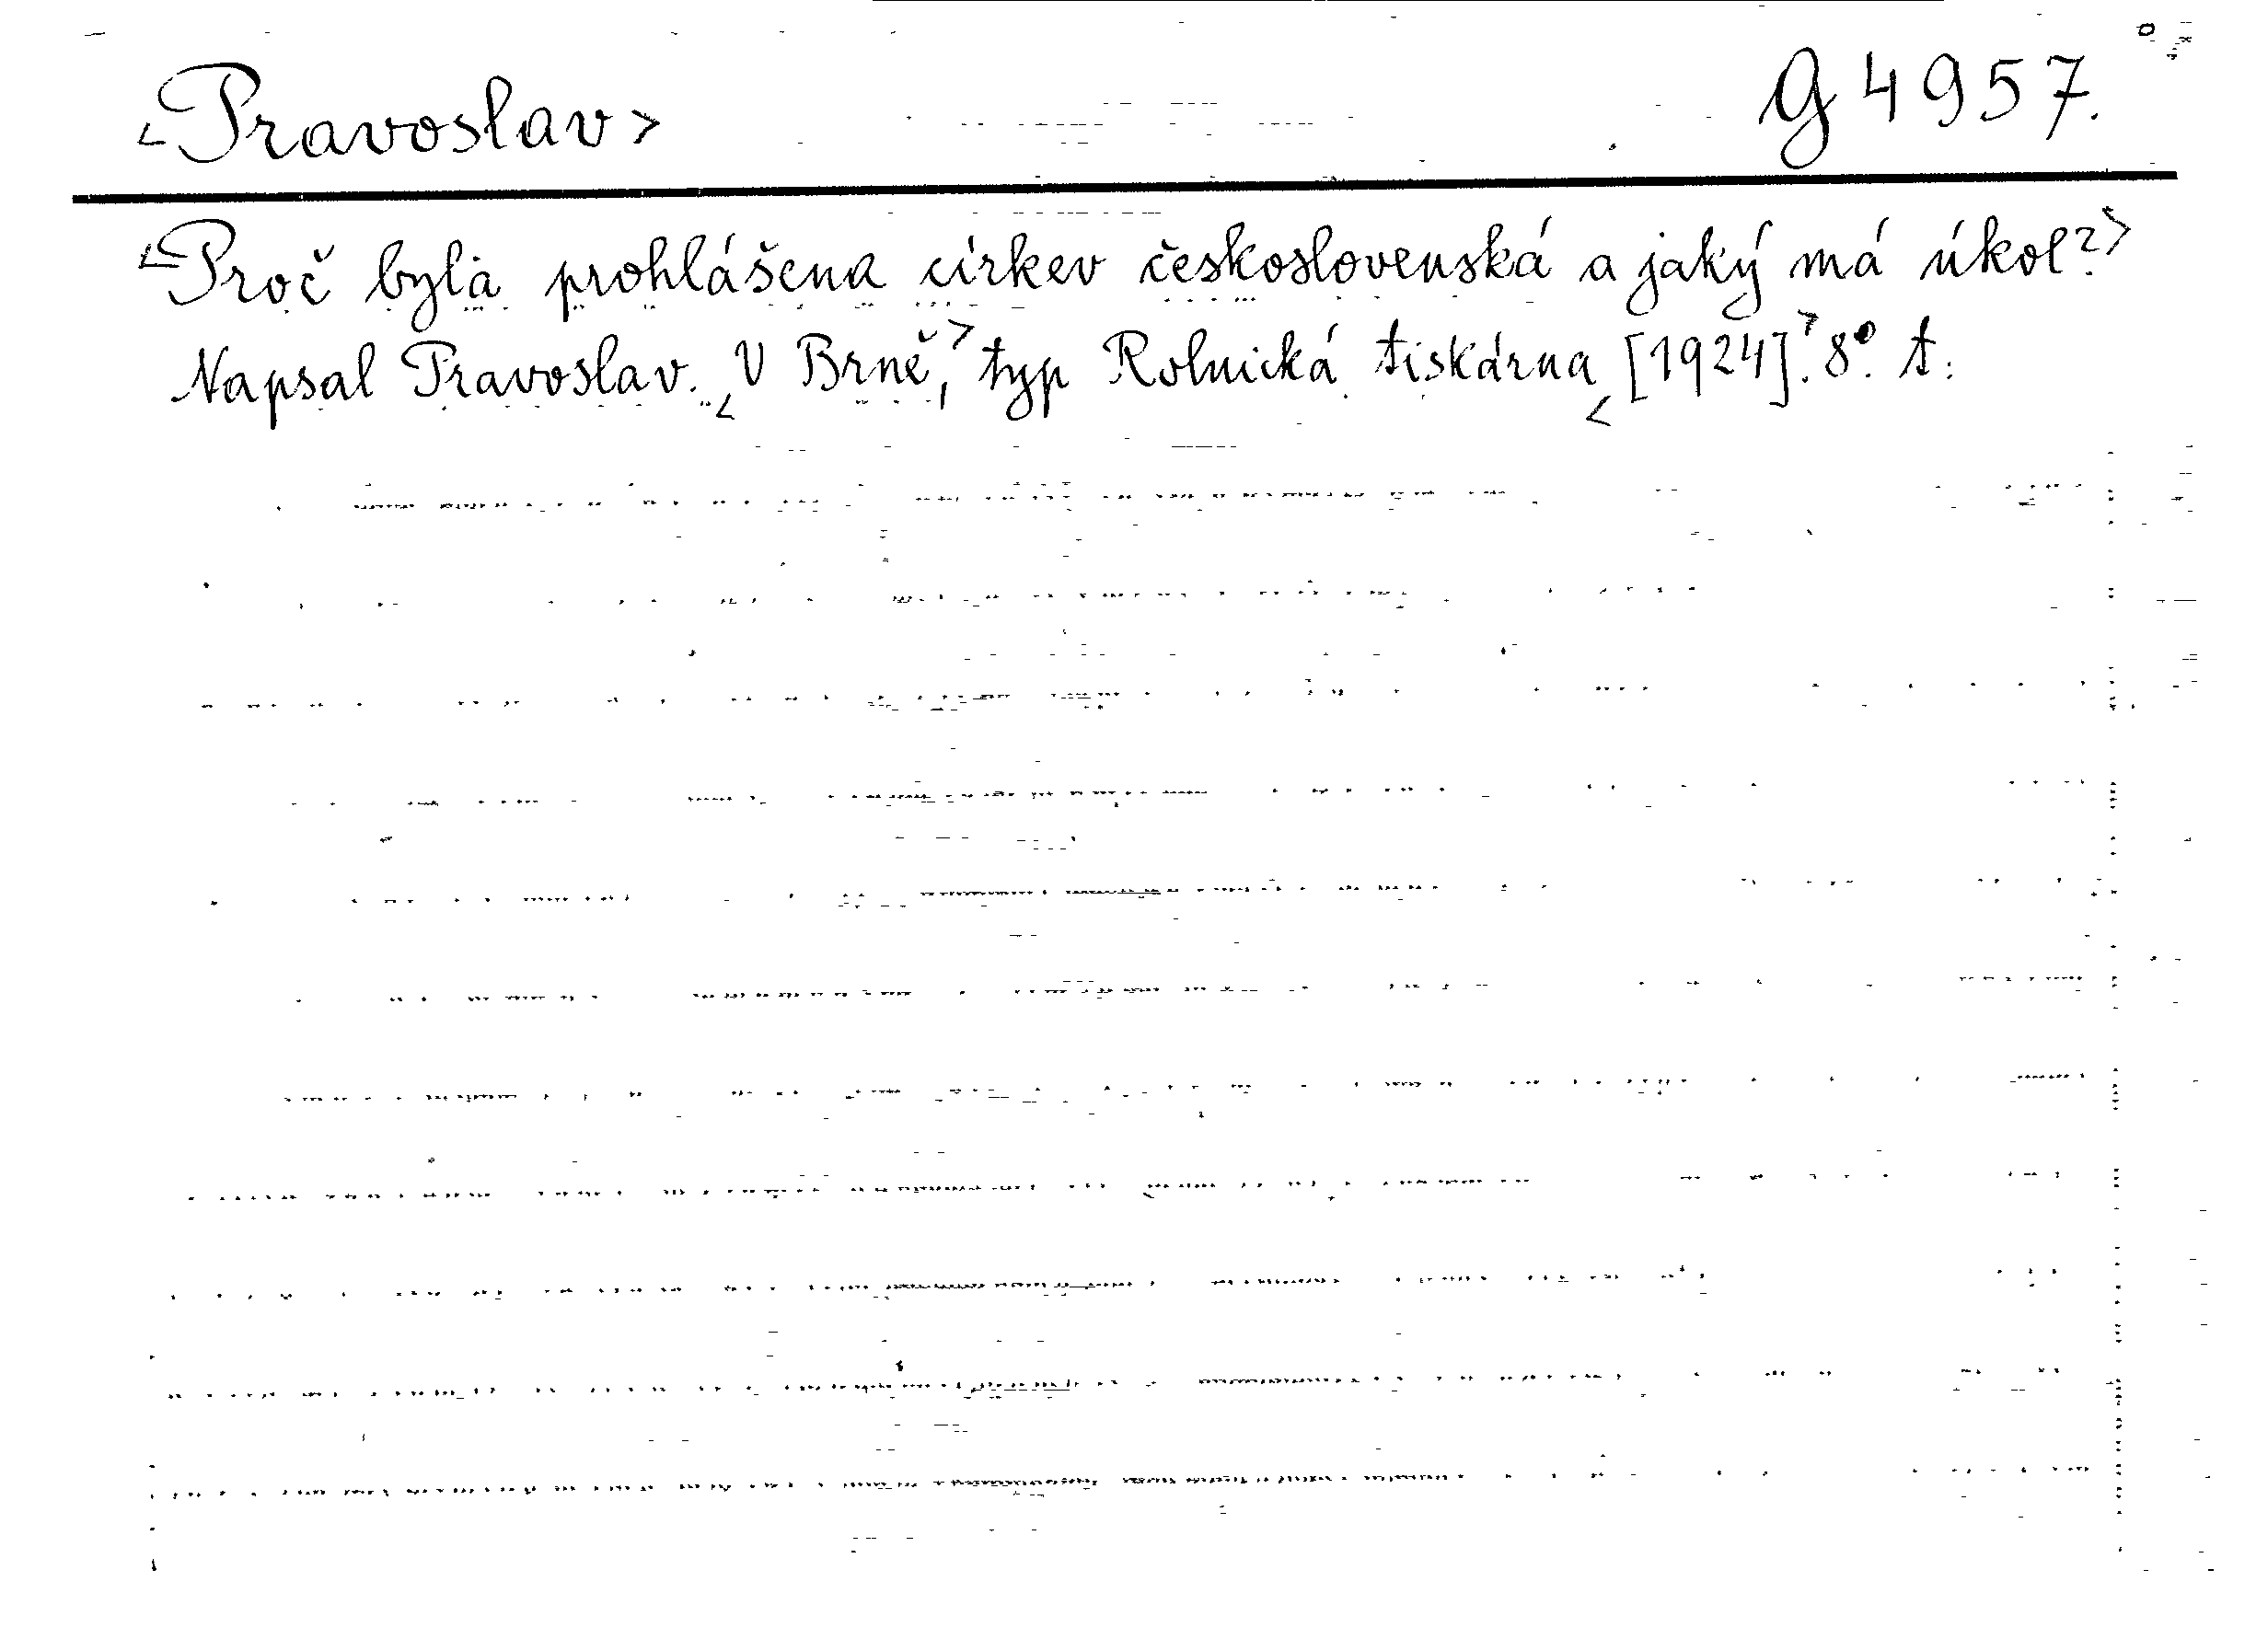 <Pravoslav> G 4957.
<Proč byla prohlášena církev československá a jaký má úkol?>
Napsal Pravoslav. <V Brně,> typ Rolnická tiskárna <[1924].> 8°. t.